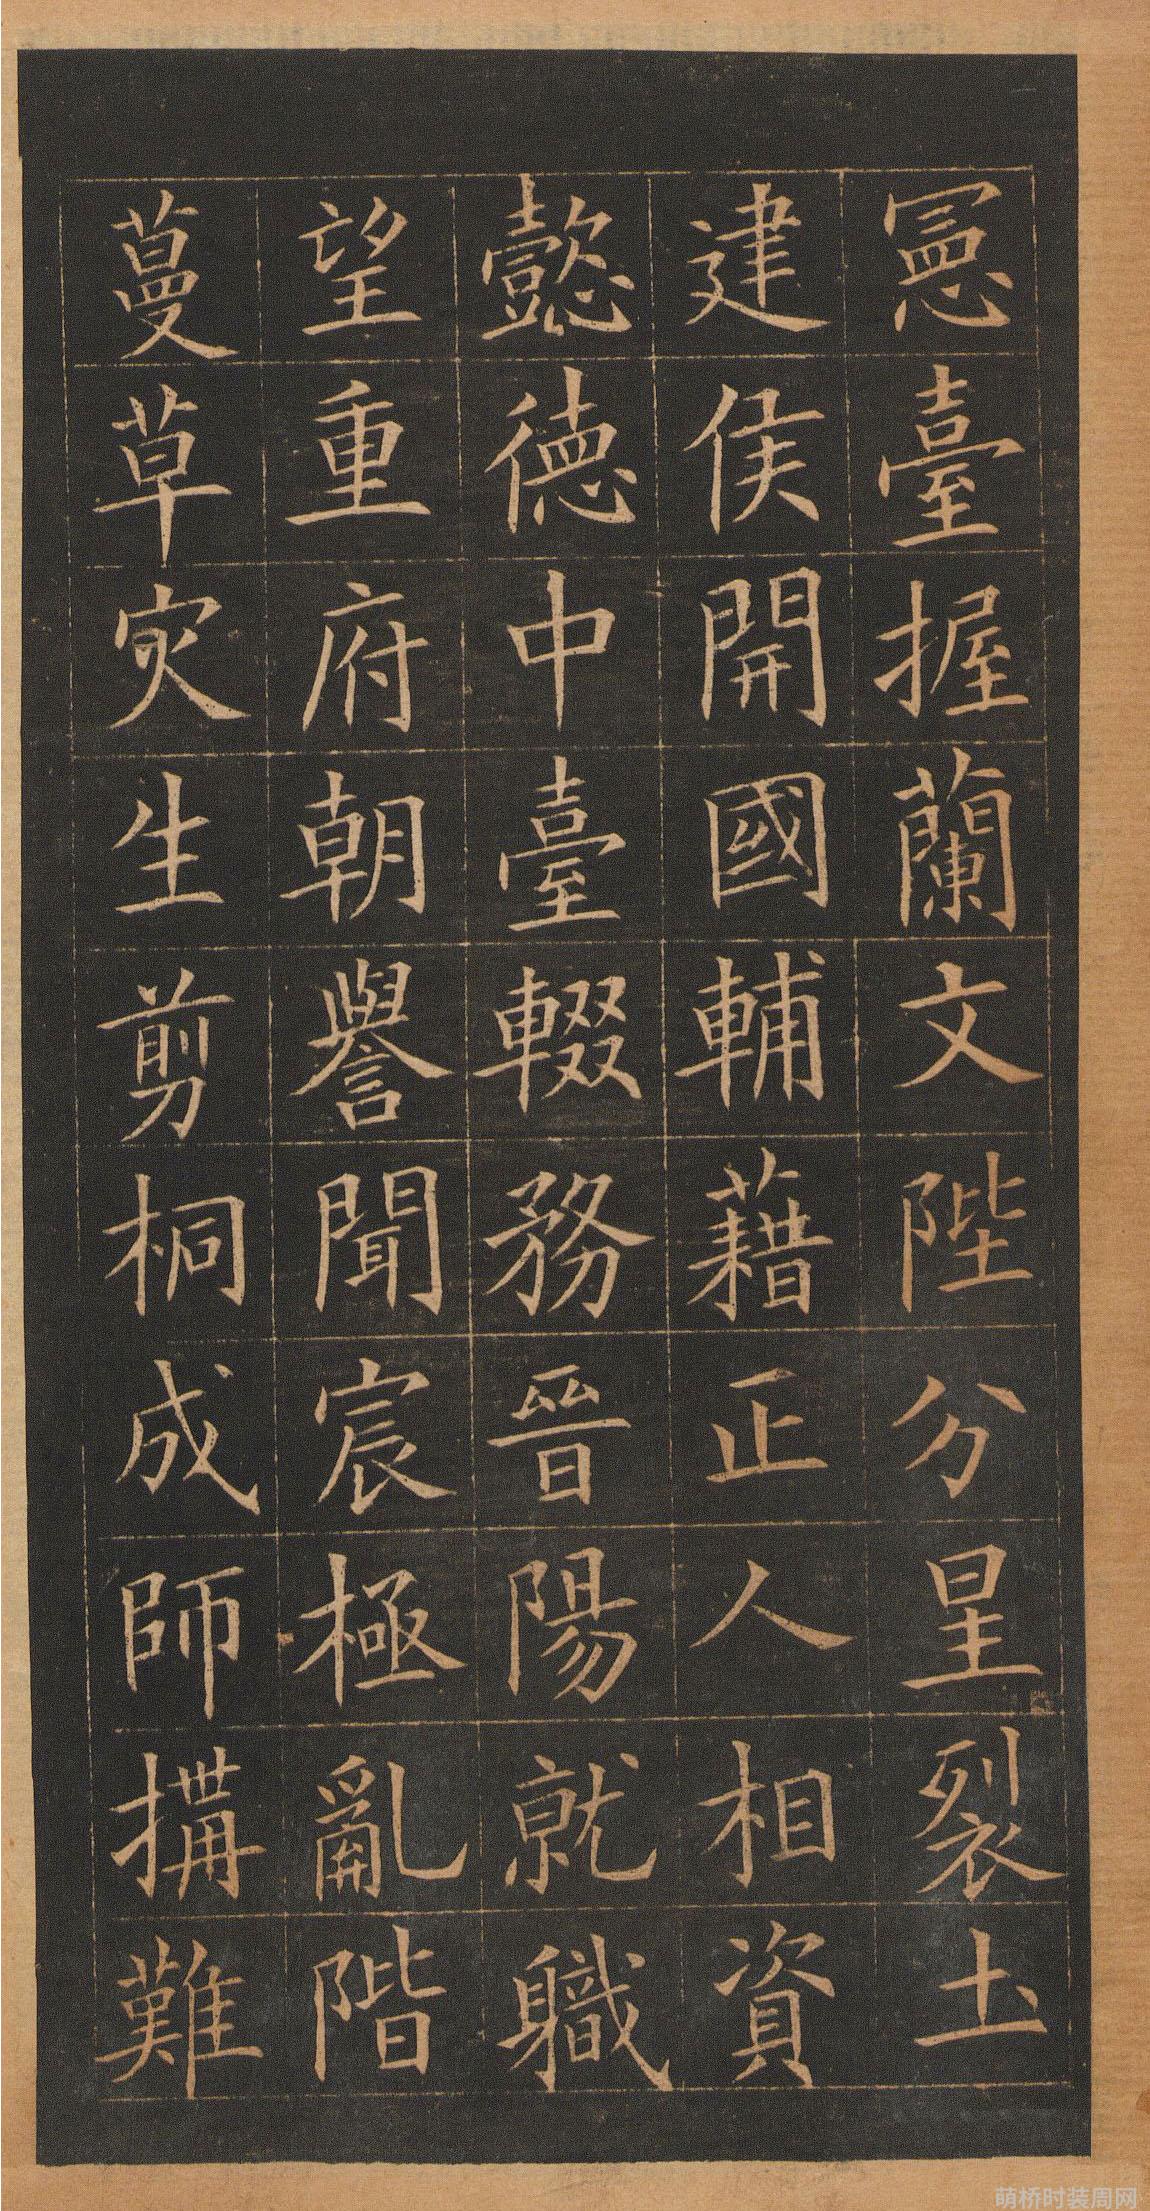 憲臺握蘭文陛分星裂土
建侯開國輔藉正人相資
懿德中臺輟務晉陽就職
望重府朝譽聞宸極亂階
蔓草灾生剪桐成師搆難
萌桥时装周网